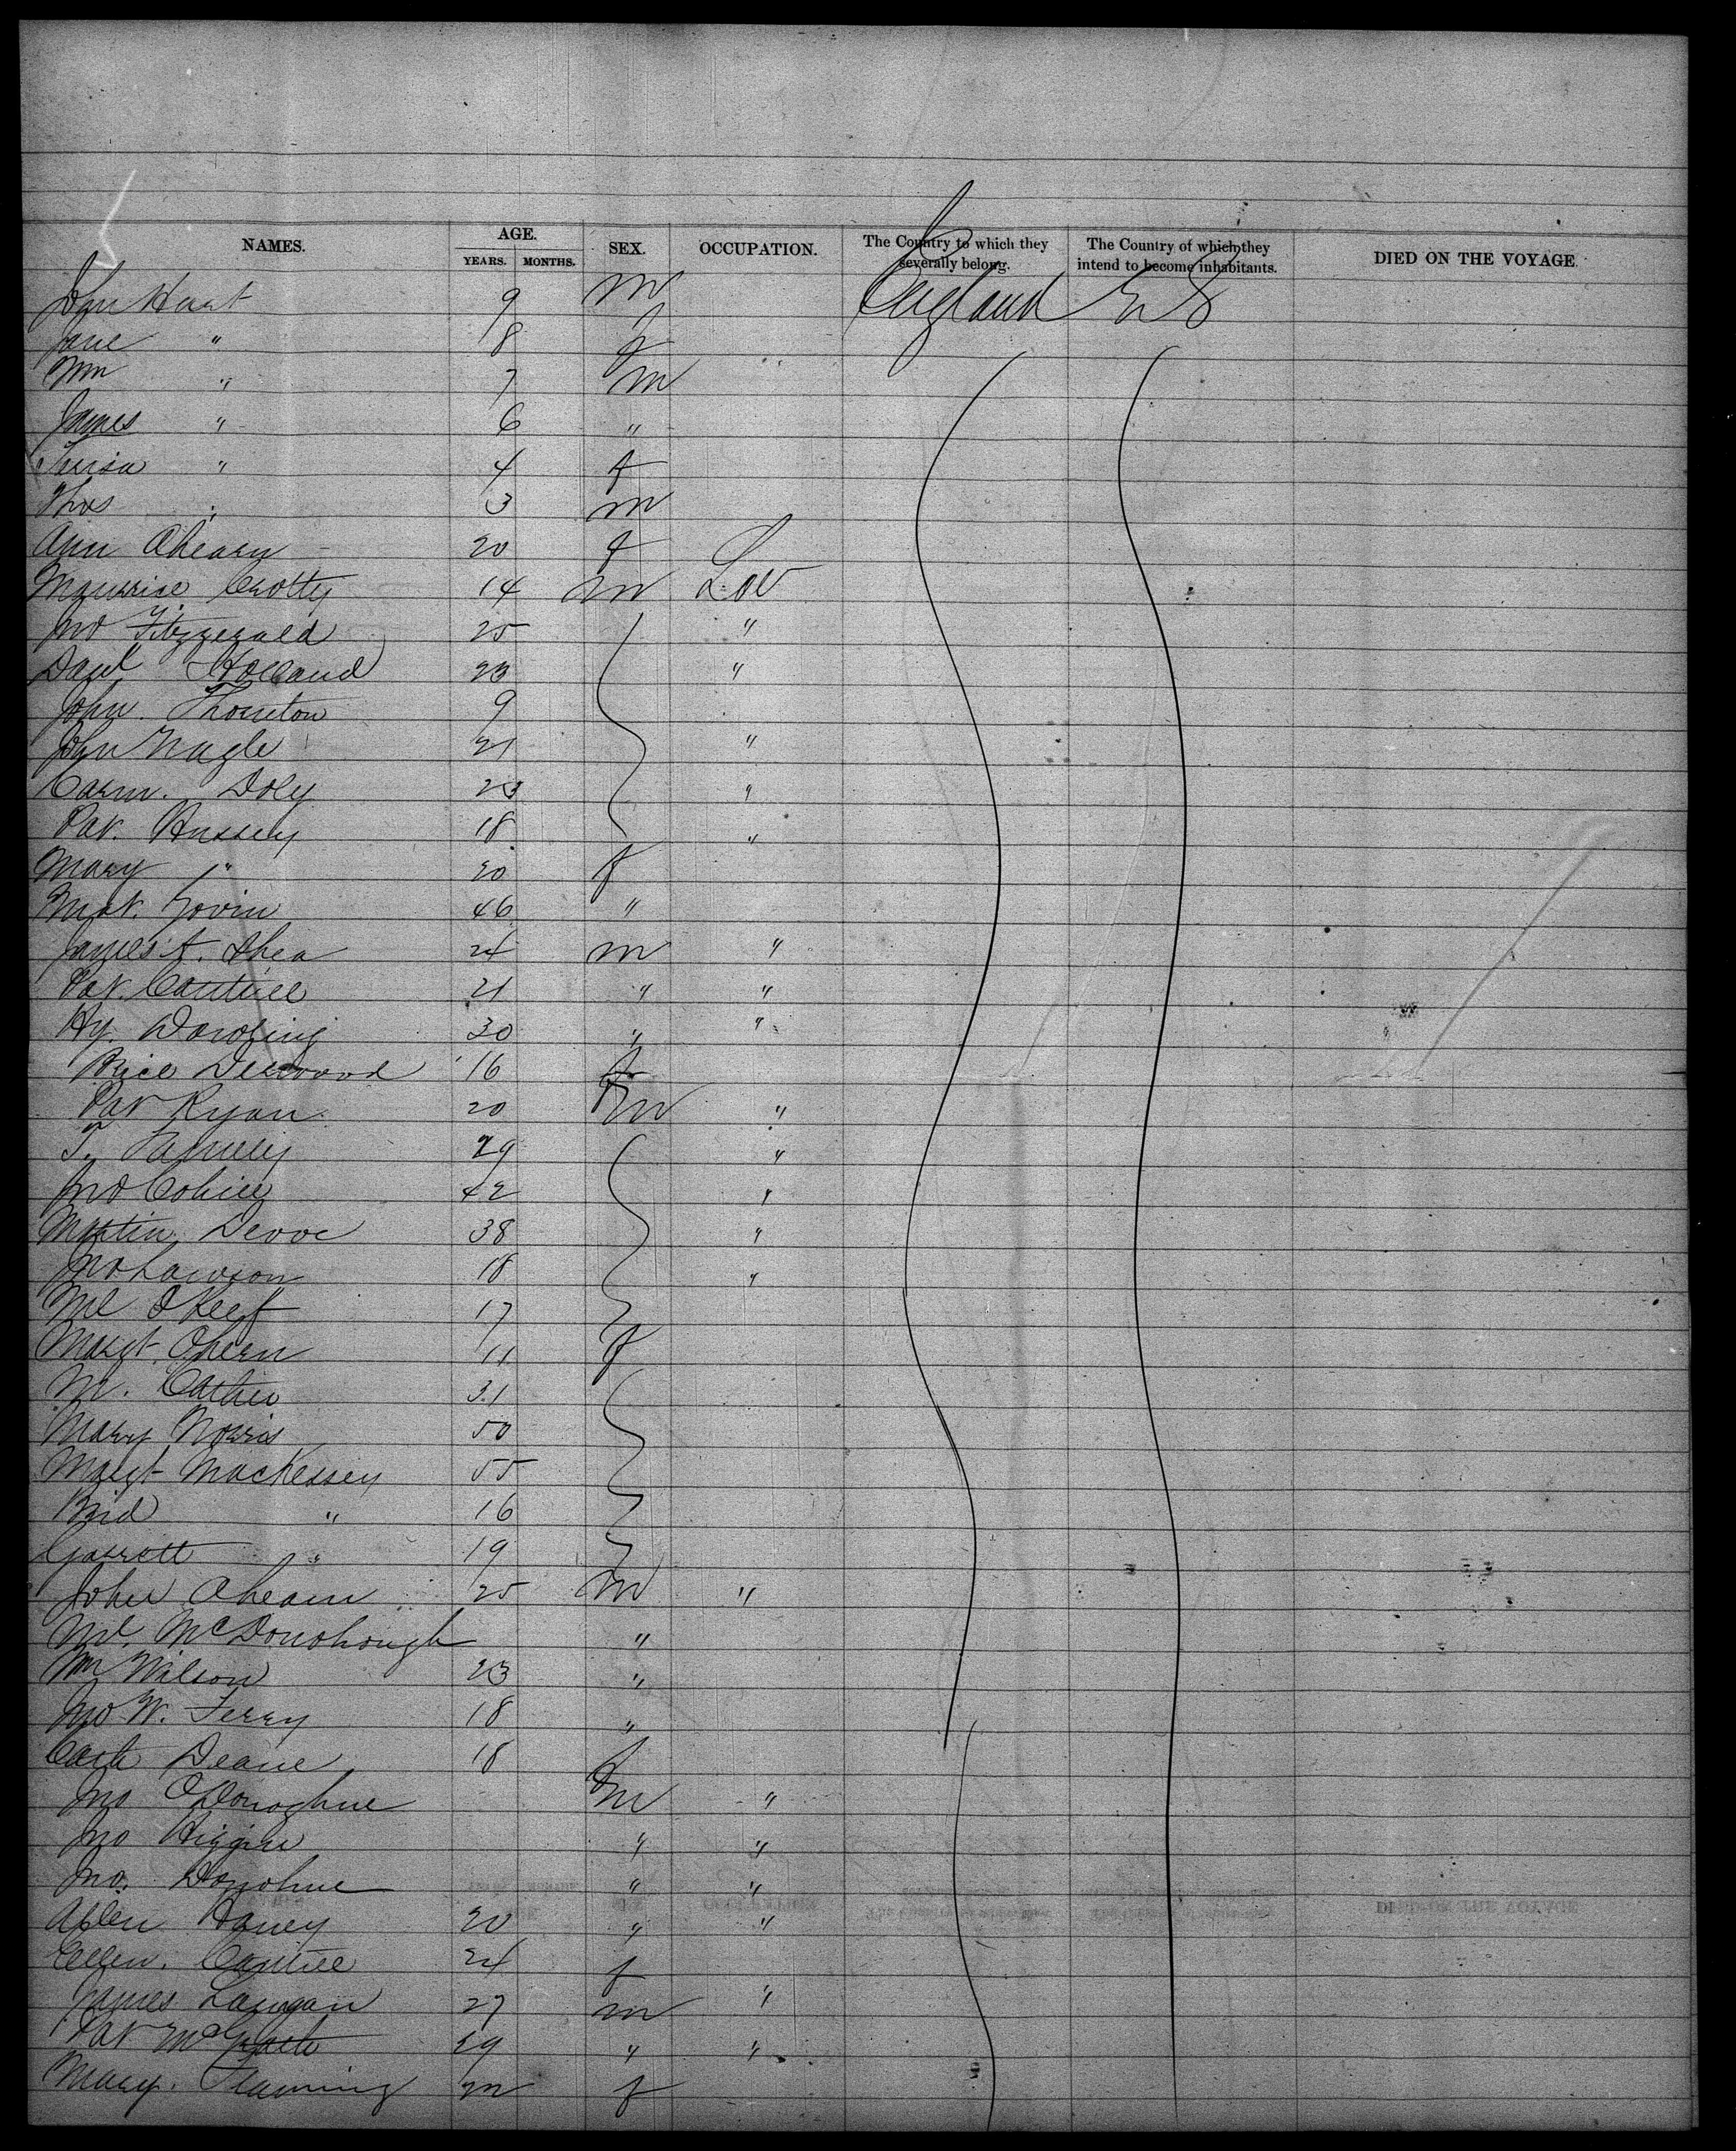 NAMES. AGE. YEARS. MONTHS. SEX. OCCUPATION. The Country to which they severally belong. The Country of which they intend to become inhabitants. DIED ON THE VOYAGE.
John Hart 9 m England U S
Jane " 8 f
Wm " 7 m
James " 6 "
Teresa " 4 f
Thos " 3 m
Ann Ahearn 20 f
Maurice Crotty 14 m Lab
Jno Fitzgerald 25 "
Danl Holland 23 "
John Thornton 9
John Nagle 21 "
Corn. Doly 23 "
Pat. Hussey 18 "
Mary " 20 f
Govin 46 "
James A. Shea 24 m "
Pat. Cantill 21 " "
Hy. Dowling 30 " "
16 f
Pat Ryan 20 m "
T. 29 "
Jno Cohill 42 "
Martin Devoe 38 "
Jno Lawson 18 "
Ml OKeef 17
Margt Ahern 11 f
M. 31
Mary Norris 50
Margt MacKessey 55
Brid " 16
Garrott " 19
John Ahearn 25 m "
Ml. McDonohough "
Wm Wilson 23 "
Jno W. Ferry 18 "
Cath Deane 18 f
Jno ODonoghue m "
Jno Higgins " "
Jno. Donohue " "
Allen Haney 20 " "
Ellen Cantill 24 f
James Langan 27 m "
Pat McGrath 29 " "
Mary Flaming 22 f